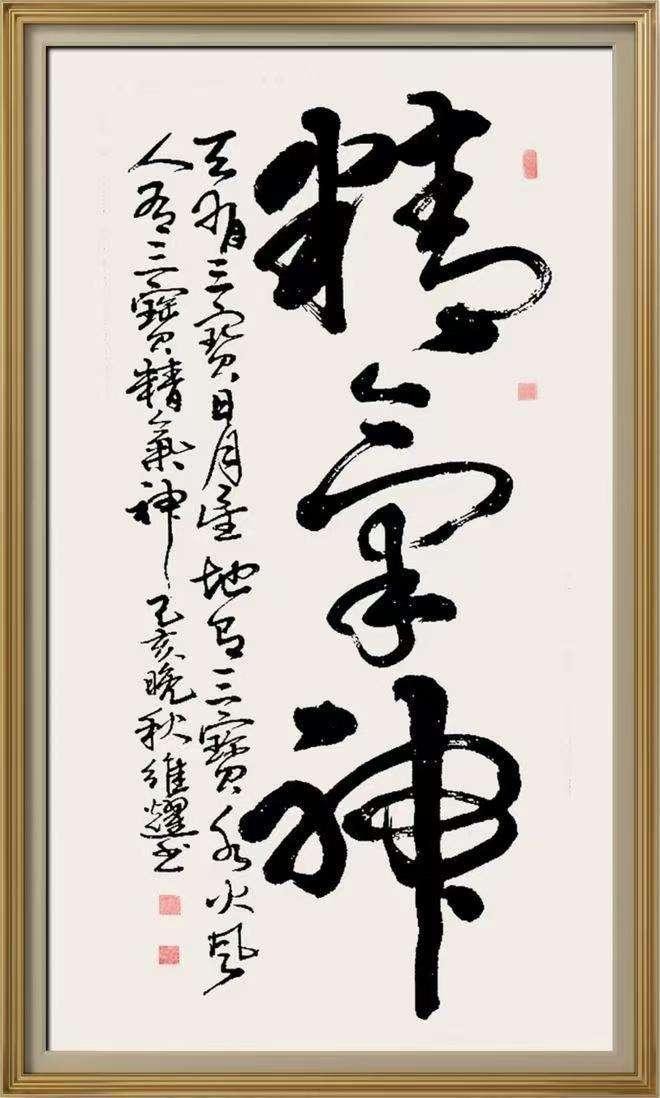 精氣神
天有三寶日月星地有三寶水火風
人有三寶精氣神己亥晚秋維耀书